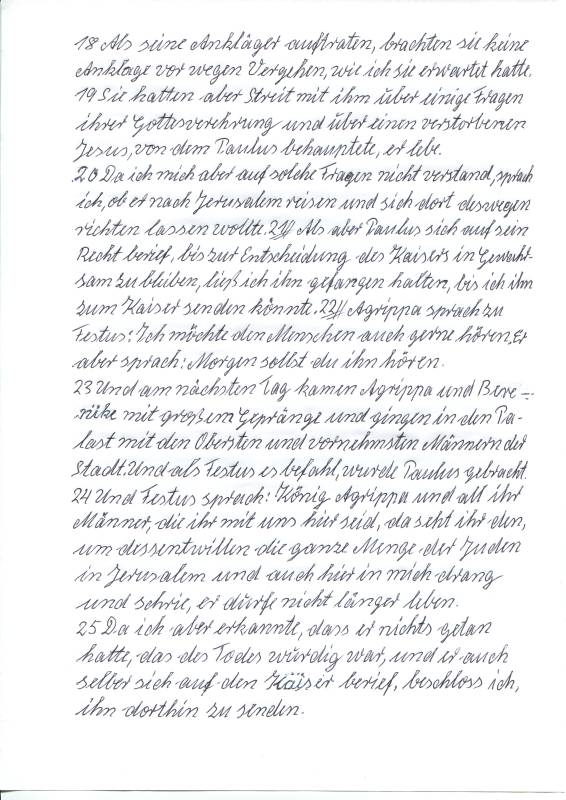 18 Als seine Ankläger auftraten, brachten sie keine
Anklage vor wegen Vergehen, wie ich sie erwartet hatte.
19 Sie hatten aber Streit mit ihm über einige Fragen
ihrer Gottesverehrung und über einen verstorbenen
Jesus, von dem Paulus behauptete, er lebe.
20 Da ich mich aber auf solche Fragen nicht verstand, sprach
ich, ob er nach Jerusalem reisen und sich dort deswegen
richten lassen wollte. 21// Als aber Paulus sich auf sein
Recht berief, bis zur Entscheidung des Kaisers in Gewahr-
sam zu bleiben, ließ ich ihn gefangen halten, bis ich ihn
zum Kaiser senden könnte. 22// Agrippa sprach zu
Festus: Ich möchte den Menschen auch gerne hören. Er
aber sprach: Morgen sollst du ihn hören.
23 Und am nächsten Tag kamen Agrippa und Bere-
nike mit großem Gepränge und gingen in den Pa-
last mit den Obersten und vornehmsten Männern der
Stadt. Und als Festus es befahl, wurde Paulus gebracht.
24 Und Festus sprach: König Agrippa und all ihr
Männer, die ihr mit uns hier seid, da seht ihr den,
um dessentwillen die ganze Menge der Juden
in Jerusalem und auch hier in mich drang
und schrie, er dürfe nicht länger leben.
25 Da ich aber erkannte, dass er nichts getan
hatte, das des Todes würdig war, und er auch
selber sich auf den Kaiser berief, beschloss ich,
ihn dorthin zu senden.